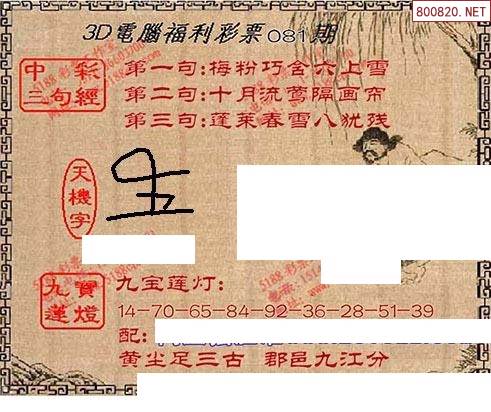 800820.NET
3D電腦福利彩票081期
中彩
三句經
第一句:梅粉巧含六上雪
第二句:十月流莺隔画帘
第三句:蓬莱春雪八犹残
天機字
九寶
蓮燈
九宝莲灯:
14-70-65-84-92-36-28-51-39
配:
黄尘足三古 郡邑九江分